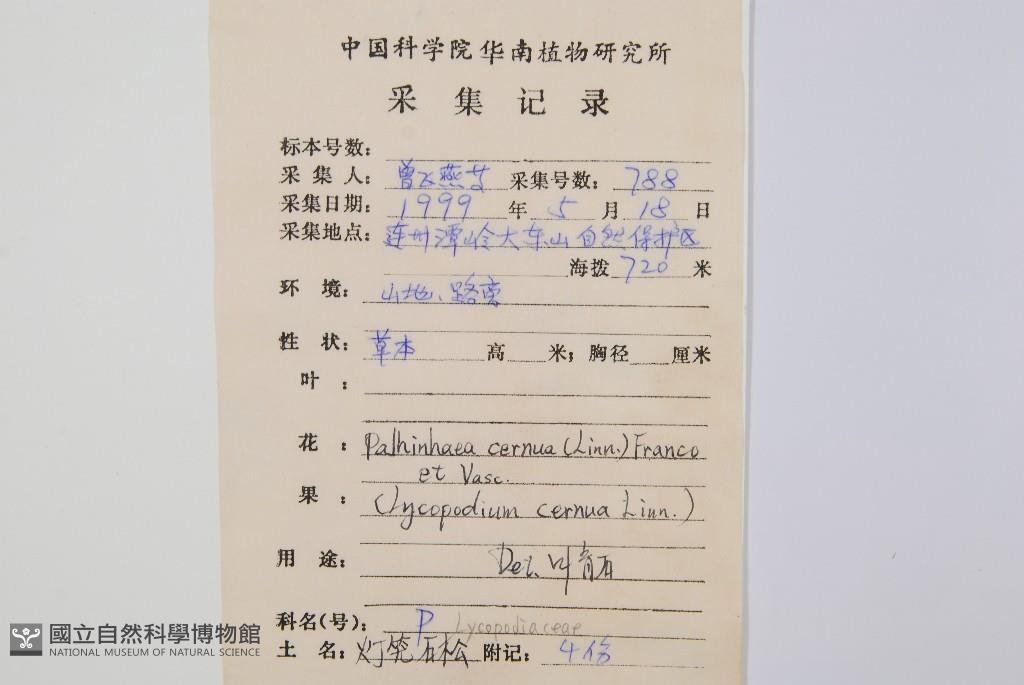 中国科学院华南植物研究所
采集记录
标本号数：
采集人：曾飞燕 采集号数：788
采集日期：1999年5月18日
采集地点：连州潭岭大东山自然保护区
海拨720米
环境：山地、路旁
性状：草本 高 米；胸径 厘米
叶：
花：Palhinhaea cernua (Linn.) Franco
et Vasc.
果：(Lycopodium cernua Linn.)
用途：Det. 叶育石
科名(号)：P Lycopodiaceae
土名：灯笼石松 附记：4份
國立自然科學博物館
NATIONAL MUSEUM OF NATURAL SCIENCE